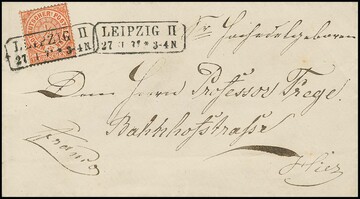 LEIPZIG II
3-4N
LEIPZIG II
3-4N
Sr. Hochwohlgeboren
Dem Herrn Professor Frege
Bahnhofstrasse
Franco
Hier